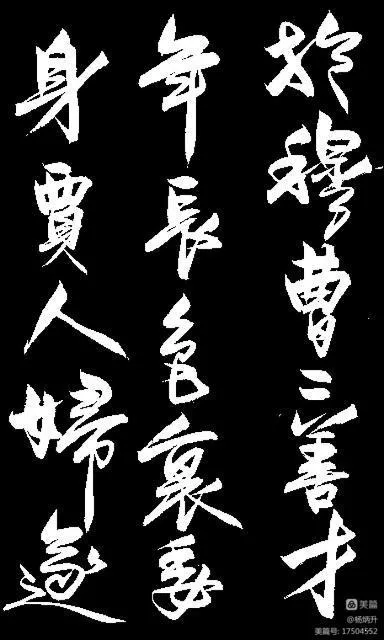 於穆曹二善才
年長色衰委
身賈人婦遂
美篇
@杨炳升
美篇号: 17504552